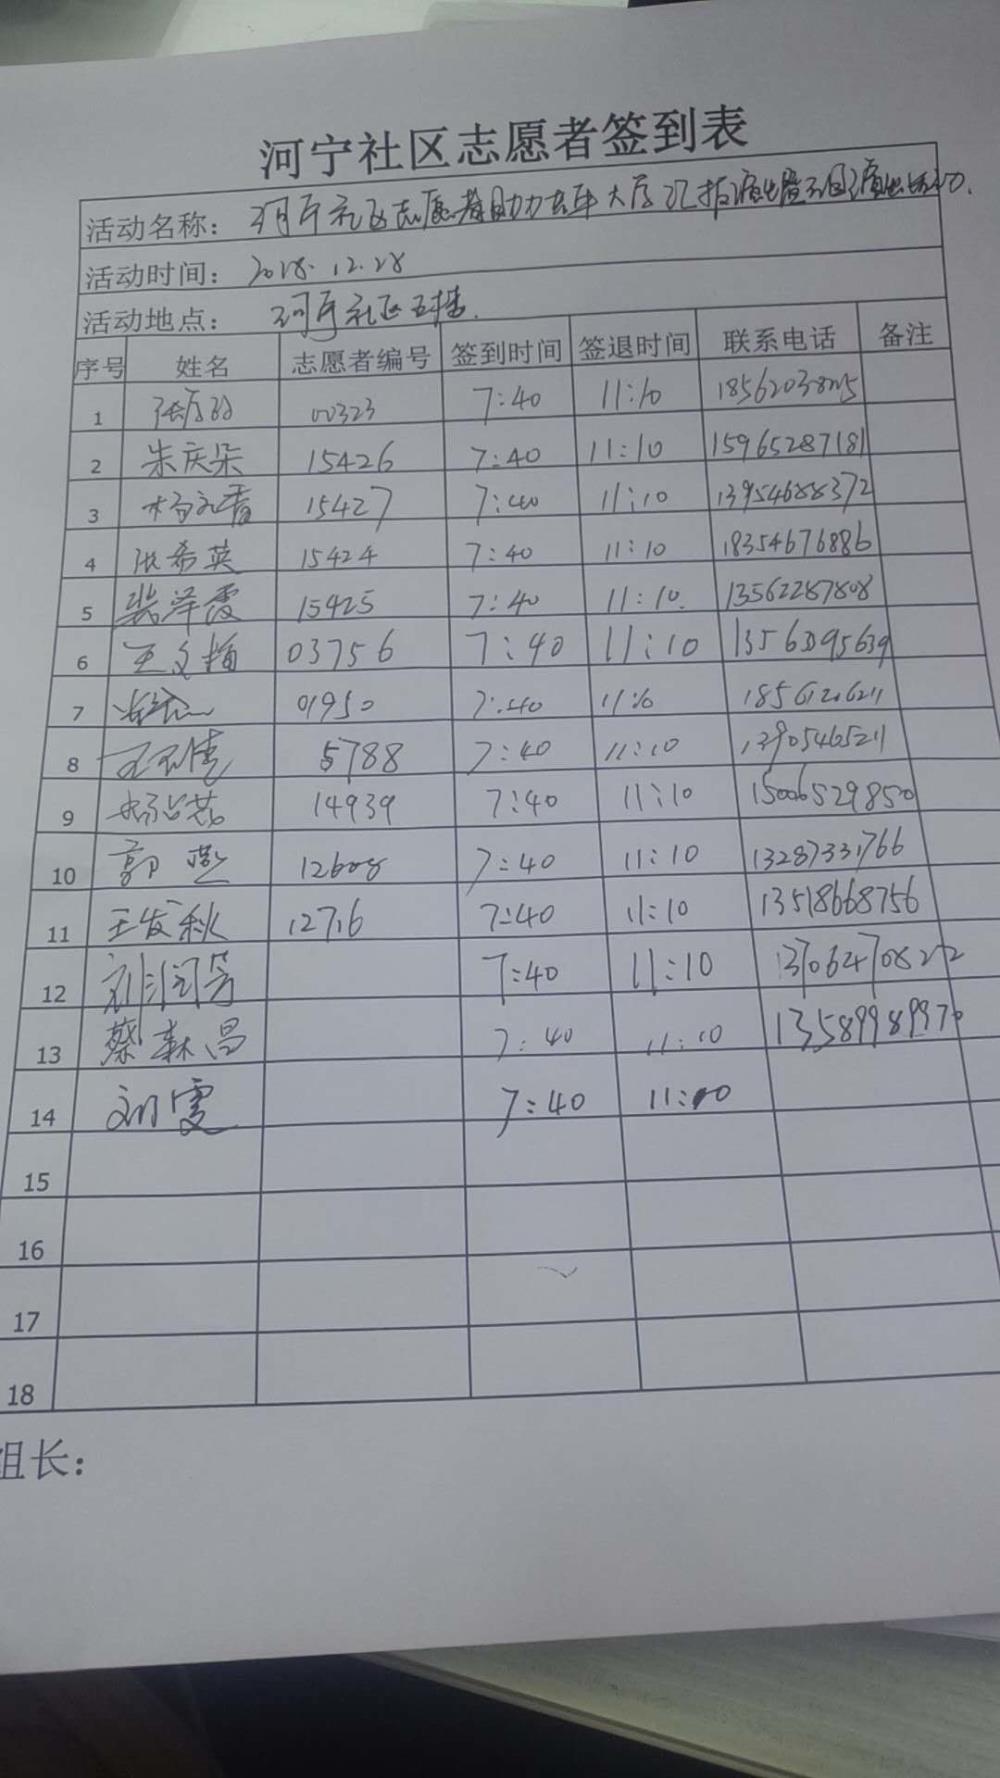 河宁社区志愿者签到表
活动名称：河宁社区志愿者助力老年大学汇报演出暨 演出活动.
活动时间：2018.12.28
活动地点：河宁社区五楼.
序号 姓名 志愿者编号 签到时间 签退时间 联系电话 备注
1 00323 7:40 11:10
2 朱庆朵 15426 7:40 11:10 15965287181
3 杨永香 15427 7:40 11:10 13954688372
4 张希英 15424 7:40 11:10 18354676886
5 裴泽霞 15425 7:40 11:10. 13562287808
6 王文梅 03756 7:40 11:10
7 01950 7:40 11:10
8 5788 7:40 11:10 13905465211
9 14939 7:40 11:10 15006529850
10 郭燕 12608 7:40 11:10 13287331766
11 王发秋 12716 7:40 11:10 13518668756
12 刘润芳 7:40 11:10 13706470822
13 蔡森昌 7:40 11:10 13589989970
14 刘霞 7:40 11:10
15
16
17
18
组长：